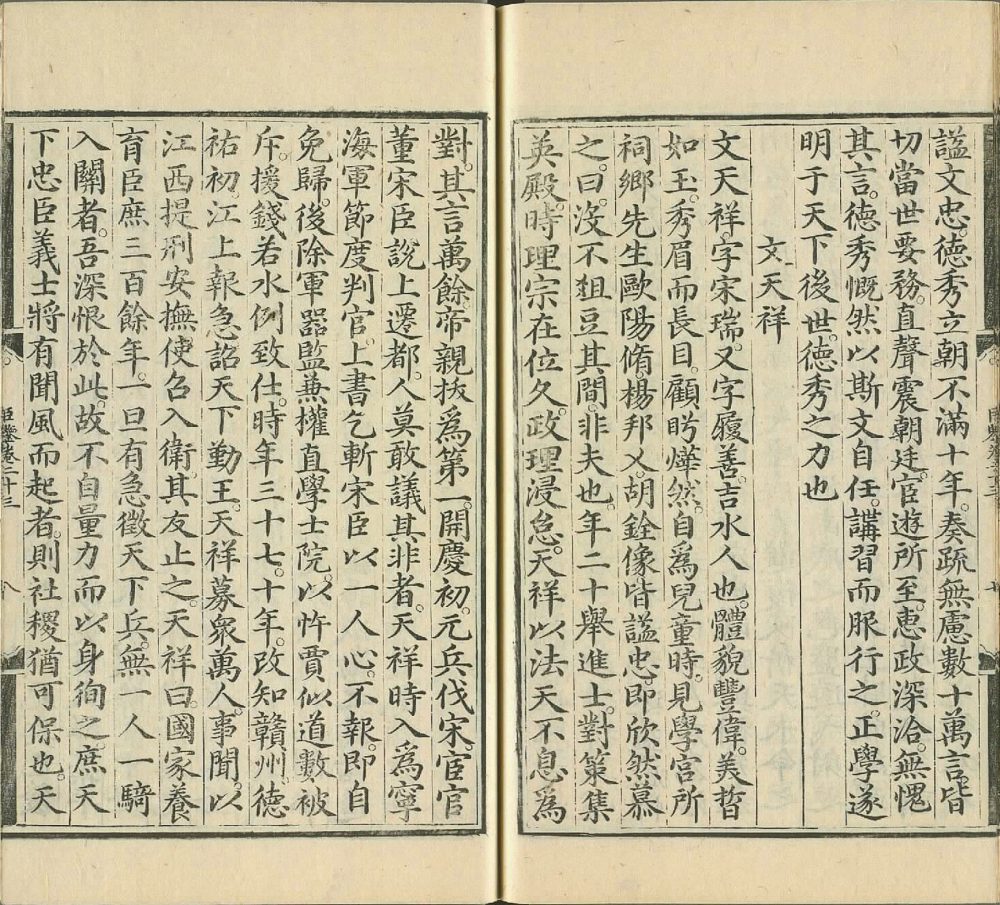 諡文忠。德秀立朝。不滿十年。奏疏無慮數十萬言。皆
切當世要務。直聲震朝廷。宦遊所至。惠政深洽。無愧
其言。德秀慨然以斯文自任。講習而服行之。正學遂
明于天下後世。德秀之力也
文天祥
文天祥。字宋瑞。又字履善。吉水人也。體貌豐偉。美晳
如玉。秀眉而長目。顧盻燁然。自爲兒童時。見學宮所
祠鄉先生歐陽脩。楊邦乂。胡銓像。皆諡忠。即欣然慕
之。曰。沒不俎豆其間。非夫也。年二十舉進士。對策集
英殿。時理宗在位久。政理浸怠。天祥以法天不息爲
對。其言萬餘。帝親拔爲第一。開慶初。元兵伐宋。宦官
董宋臣說上遷都。人莫敢議其非者。天祥時入爲寧
海軍節度判官。上書乞斬宋臣以一人心。不報。即自
免歸。後除軍器監兼權直學士院。以忤賈似道。數被
斥。援錢若水例致仕。時年三十七。十年。改知贛州。德
祐初江上報急。詔天下勤王。天祥募衆萬人。事聞。以
江西提刑安撫使召入衛。其友止之。天祥曰。國家養
育臣庶三百餘年。一旦有急。徵天下兵。無一人一騎
入關者。吾深恨於此。故不自量力。而以身徇之。庶天
下忠臣義士。將有聞風而起者。則社稷猶可保也。天
臣鑒卷二十三
八